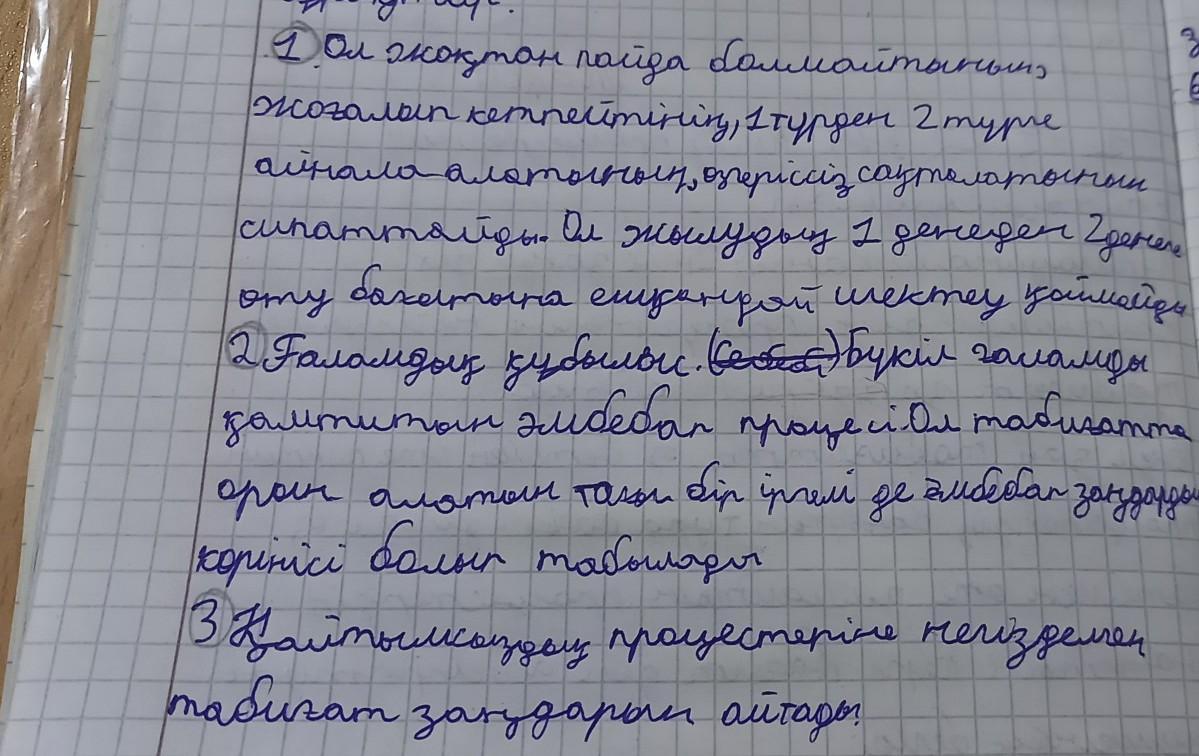 1 Ол жоқтан пайда болмайтынын,
жоғалып кетпейтінің, 1 түрден 2 түрге
айнала алатының, өзгеріссіз сақталатынын
сипаттайды. Ол жылудың 1 денеден 2 денеге
өту бағытына ешқандай шектеу қоймайды
2 Ғаламдық құбылыс. Бүкіл ғаламды
қамтитын әмбебап процесі. Ол табиғатта
орын алатын тағы бір іргелі де әмбебап заңдардың
көрінісі болып табылады
3 Қайтымсыздық процестеріне негізделген
табиғат заңдарын айтады.